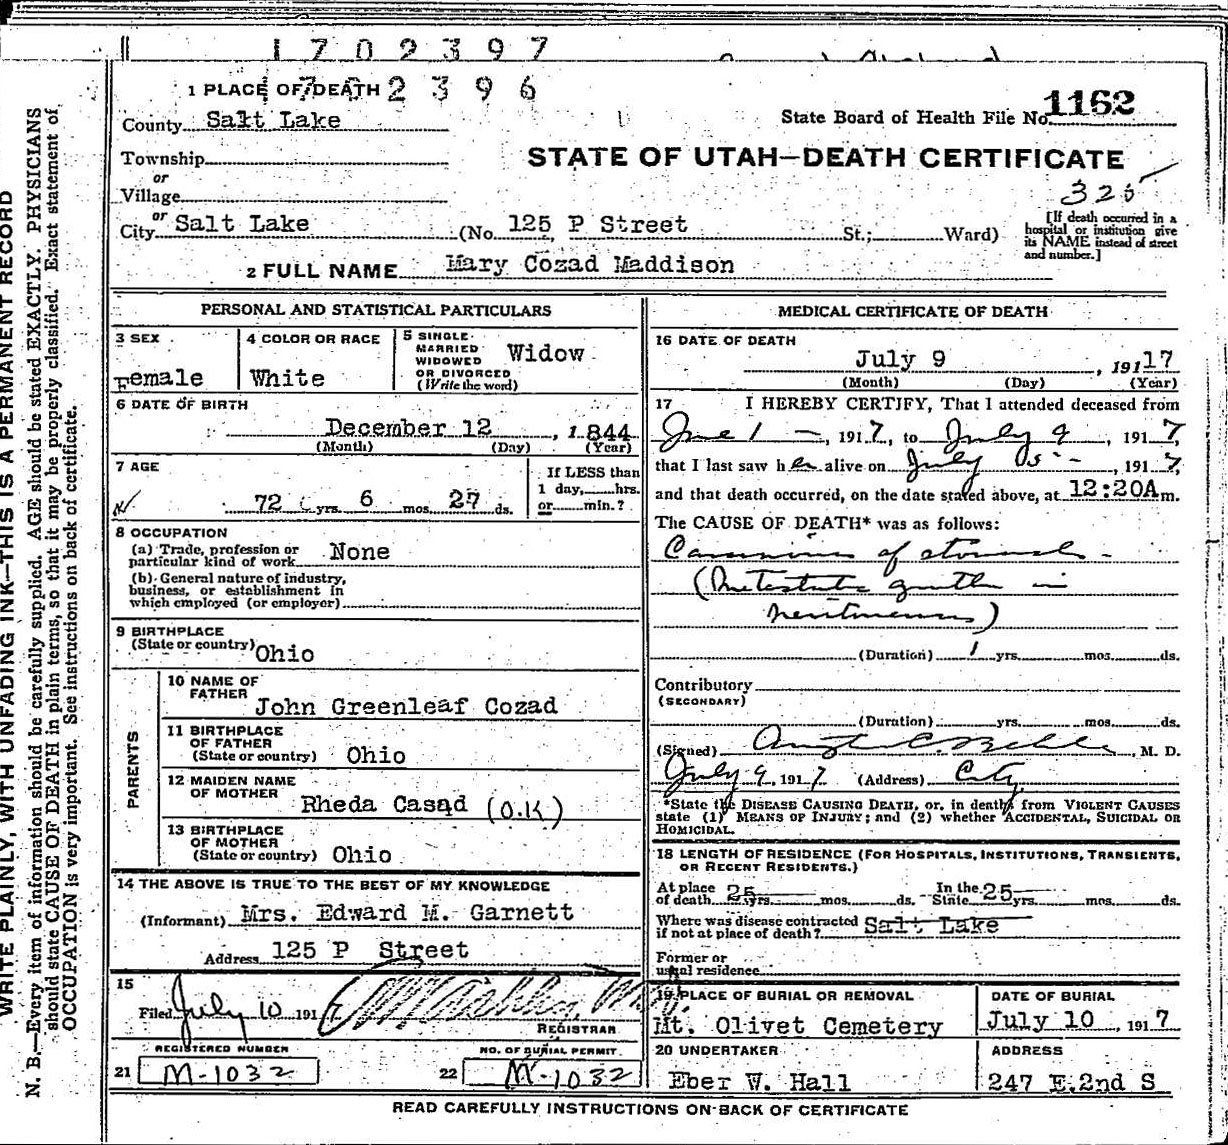 1702397
1702396
1 PLACE OF DEATH
State Board of Health File No. 1162
County Salt Lake
STATE OF UTAH—DEATH CERTIFICATE
Township
or
325
Village
or
City Salt Lake (No. 125 P Street St.; Ward)
[If death occurred in a hospital or institution give its NAME instead of street and number.]
2 FULL NAME Mary Cozad Maddison
PERSONAL AND STATISTICAL PARTICULARS
3 SEX
Female
4 COLOR OR RACE
White
5 SINGLE
MARRIED
WIDOWED
OR DIVORCED
(Write the word)
Widow
6 DATE OF BIRTH
December 12, 1844
(Month) (Day) (Year)
7 AGE
72 yrs. 6 mos. 27 ds.
If LESS than
1 day, hrs.
or min.?
8 OCCUPATION
(a) Trade, profession or
particular kind of work None
(b) General nature of industry,
business, or establishment in
which employed (or employer)
9 BIRTHPLACE
(State or country) Ohio
PARENTS
10 NAME OF
FATHER
John Greenleaf Cozad
11 BIRTHPLACE
OF FATHER
(State or country) Ohio
12 MAIDEN NAME
OF MOTHER
Rheda Casad (O.K)
13 BIRTHPLACE
OF MOTHER
(State or country) Ohio
14 THE ABOVE IS TRUE TO THE BEST OF MY KNOWLEDGE
(Informant) Mrs. Edward M. Garnett
Address 125 P Street
15
Filed July 10 1917
REGISTRAR
REGISTERED NUMBER
21 M-1032
NO. OF BURIAL PERMIT
22 M-1032
MEDICAL CERTIFICATE OF DEATH
16 DATE OF DEATH
July 9, 19117
(Month) (Day) (Year)
17 I HEREBY CERTIFY, That I attended deceased from
June 1 —, 1917, to July 9, 1917,
that I last saw her alive on July 1917,
and that death occurred, on the date stated above, at 12:20A m.
The CAUSE OF DEATH* was as follows:
of stomach -
in
(Duration) 1 yrs. mos. ds.
Contributory
(SECONDARY)
(Duration) yrs. mos. ds.
(Signed) M. D.
July 9, 1917 (Address) City
*State the DISEASE CAUSING DEATH, or, in deaths from VIOLENT CAUSES
state (1) MEANS OF INJURY; and (2) whether ACCIDENTAL, SUICIDAL OR
HOMICIDAL.
18 LENGTH OF RESIDENCE (FOR HOSPITALS, INSTITUTIONS, TRANSIENTS,
OR RECENT RESIDENTS.)
At place
of death 25 yrs. mos. ds. In the State 25 yrs. mos. ds.
Where was disease contracted
if not at place of death? Salt Lake
Former or
usual residence
19 PLACE OF BURIAL OR REMOVAL
Mt. Olivet Cemetery
DATE OF BURIAL
July 10, 1917
20 UNDERTAKER
Eber W. Hall
ADDRESS
247 E.2nd S
READ CAREFULLY INSTRUCTIONS ON BACK OF CERTIFICATE
WRITE PLAINLY, WITH UNFADING INK—THIS IS A PERMANENT RECORD
N. B.—Every item of information should be carefully supplied. AGE should be stated EXACTLY. PHYSICIANS
should state CAUSE OF DEATH in plain terms, so that it may be properly classified. Exact statement of
OCCUPATION is very important. See instructions on back of certificate.